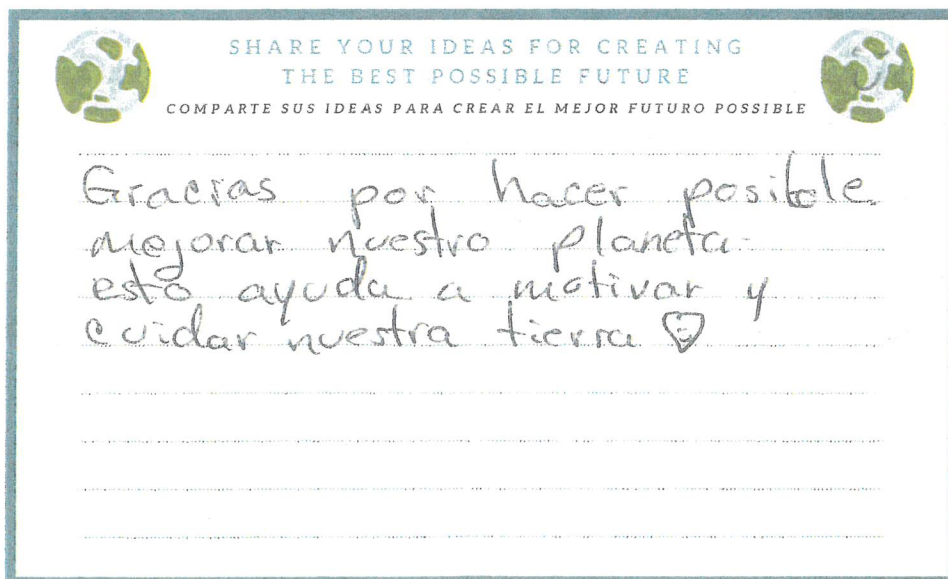 SHARE YOUR IDEAS FOR CREATING
THE BEST POSSIBLE FUTURE
COMPARTE SUS IDEAS PARA CREAR EL MEJOR FUTURO POSSIBLE
Gracias por hacer posible
mejorar nuestro planeta
esto ayuda a motivar y
cuidar nuestra tierra